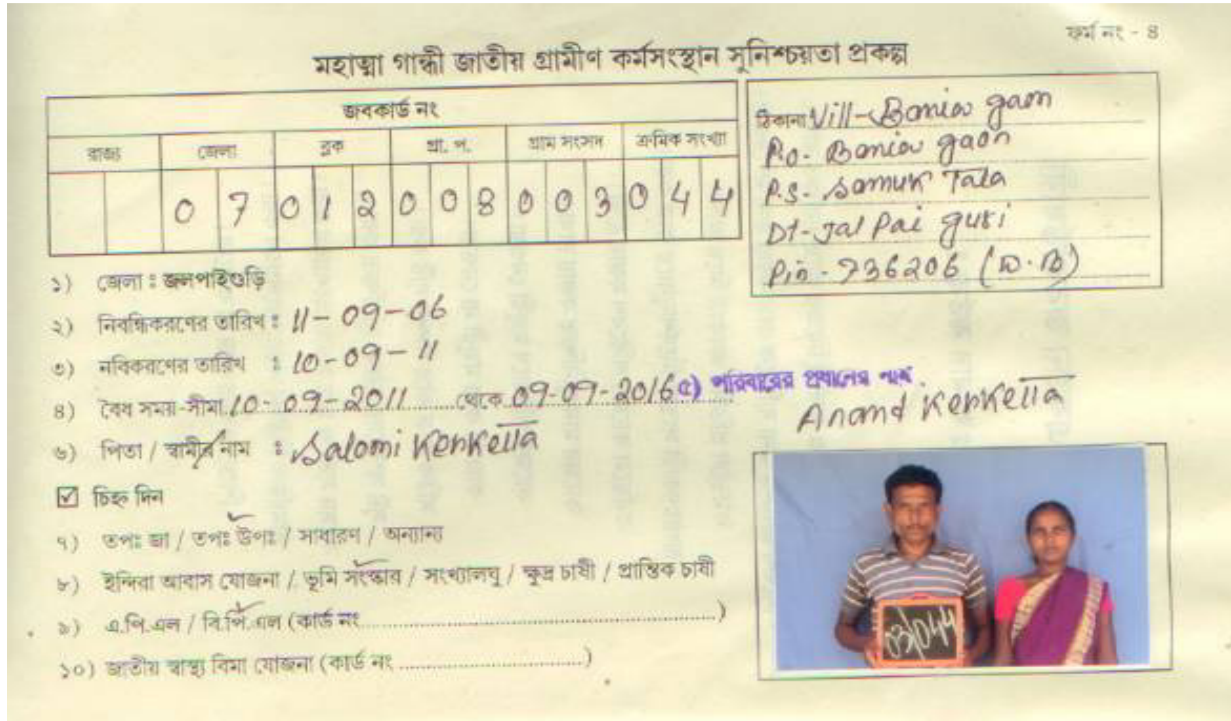 ফর্ম নং - ৪
মহাত্মা গান্ধী জাতীয় গ্রামীণ কর্মসংস্থান সুনিশ্চয়তা প্রকল্প
জবকার্ড নং
রাজ্য জেলা ব্লক গ্রা. প. গ্রাম সংসদ ক্রমিক সংখ্যা
0 7 0 1 2 0 0 8 0 0 3 0 4 4
ঠিকানা Vill- Bania gaon
P.o- Bania gaon
P.S- Samuk Tala
Dt- Jal Pai guri
Pin - 736206 (W.B)
১) জেলা : জলপাইগুড়ি
২) নিবন্ধিকরণের তারিখ : 11-09-06
৩) নবিকরণের তারিখ : 10-09-11
৪) বৈধ সময়-সীমা 10-09-2011 থেকে 09-09-2016
৫) পরিবারের প্রধানের নাম
Anand Kerketta
৬) পিতা / স্বামীর নাম : Salomi Kerketta
☑ চিহ্ন দিন
৭) তপঃ জা / তপঃ উপঃ / সাধারণ / অন্যান্য
৮) ইন্দিরা আবাস যোজনা / ভূমি সংস্কার / সংখ্যালঘু / ক্ষুদ্র চাষী / প্রান্তিক চাষী
৯) এ.পি.এল / বি.পি.এল (কার্ড নং ..............................)
১০) জাতীয় স্বাস্থ্য বিমা যোজনা (কার্ড নং ..............................)
03/044